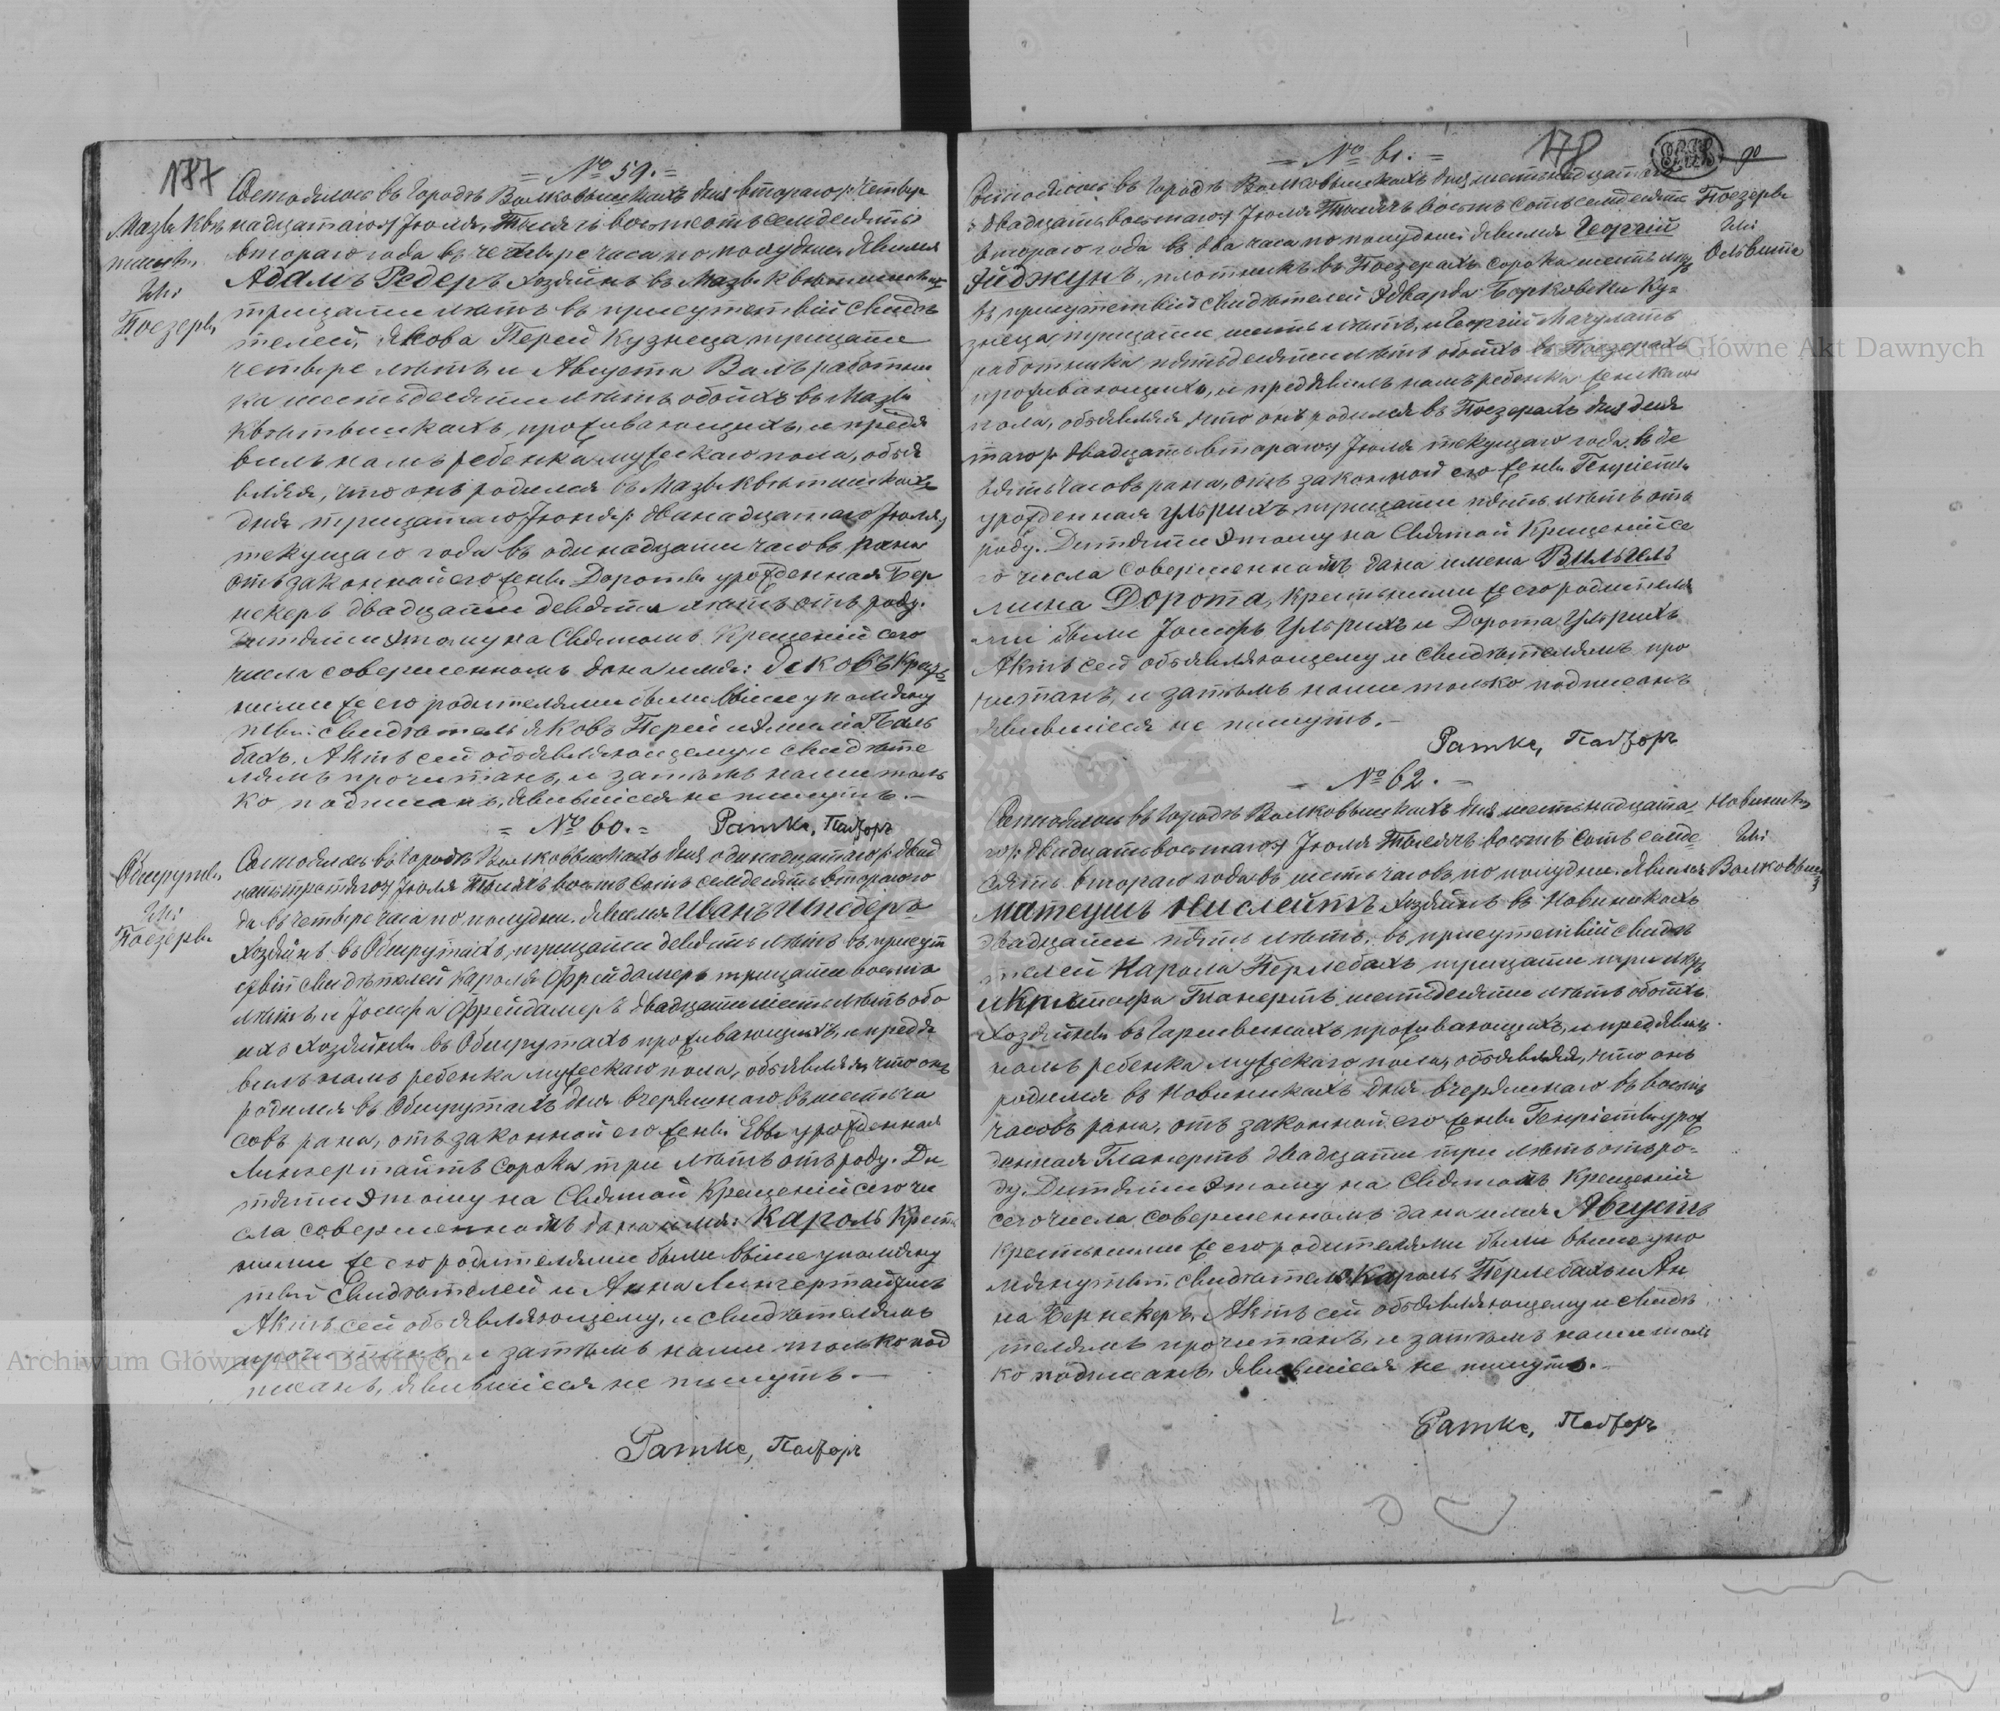 177
= № 59. =
Мазы Квѣ
тишк.
Цы
Поезеры
Состоялось въ городѣ Волковышкахъ дня втораго /: четыр
надцатаго :/ Іюля, Тысяча восемсотъ семдесятъ
втораго года въ четыре часа по полудни. Явился
Адамъ Редеръ хозяинъ въ Мазы Квѣтишкахъ
тридцати лѣтъ въ присутствіи свидѣ
телей, Якова Перей кузнеца тридцати
четыре лѣтъ и Августа Валъ работни
ка шестьдесяти лѣтъ обоихъ въ Мазы
Квѣтишкахъ проживающихъ, и предъя
вилъ намъ ребенка мужескаго пола, объя
вляя, что онъ родился въ Мазы Квѣтишкахъ
дня тридцатаго Іюня /: двѣнадцатаго Іюля :/
текущаго года въ одинадцати часовъ рана
отъ законной его жены Дороты урожденная Бер
некеръ двадцати девяти лѣтъ отъ роду.
Дитяти этому на Святомъ Крещеніи сего
числа совершенномъ дано имя: Яковъ Крест
ными же его родителями были выше упомяну
тый свидѣтель Яковъ Перей и Эмилія Баль
бахъ. Актъ сей объявляющему и свидѣте
лямъ прочитанъ, и затѣмъ нами толь
ко подписанъ, явившіеся не пишутъ. —
Ратке, Пасторъ
= № 60. =
Обшруты
Цы
Поезеры
Состоялось въ городѣ Волковышкахъ дня одинадцатаго /: двад
цать третяго :/ Іюля Тысяча восемъ сотъ семдесятъ втораго го
да въ четыре часа по полудни. Явился Иванъ Шнедеръ
хозяинъ въ Обшрутахъ, тридцати девять лѣтъ въ присут
ствіи свидѣтелей Кароля Фрейдамеръ тридцати восемь
лѣтъ, и Іосифа Фрейдамеръ двадцати шесть лѣтъ обо
ихъ хозяйны въ Обшрутахъ проживающихъ, и предъя
вилъ намъ ребенка мужескаго пола, объявляя, что онъ
родился въ Обшрутахъ дня вчерашнаго въ шесть ча
совъ рана, отъ законной его жены Евы урожденная
Лингертайтъ сорока три лѣтъ отъ роду. Ди
тяти этому на Святой Крещеніи сего чи
сла совершенномъ дано имя: Кароль Крест
ными же его родителями были выше упомяну
тый свидѣтелей и Анна Лингертайтъ
Актъ сей объявляющему, и свидѣтелямъ
прочитанъ, и затѣмъ нами только под
писанъ, явившіеся не пишутъ. —
Ратке, Пасторъ
178
90
= № 61. =
Поезеры
Цы
Ольвита
Состоялось въ городѣ Волковышкахъ дня шестьнадцатаго
/: двадцать восьмаго :/ Іюля Тысяча восемъ сотъ семдесятъ
втораго года въ два часа по полудни. Явился Георгій
Айджунъ, плотникъ въ Поезерахъ сорока шесть лѣтъ
въ присутствіи свидѣтелей Эдварда Борковски ку=
знеца тридцати шесть лѣтъ, и Георгій Мачулатъ
работника пятьдесяти лѣтъ обоихъ въ Поезерахъ
проживающихъ, и предъявилъ намъ ребенка женскаго
пола, объявляя, что онъ родился въ Поезерахъ дня деся
таго /: двадцать втораго :/ Іюля текущаго года, въ де
вять часовъ рана, отъ законной его жены Генріеты
урожденная Ульрихъ тридцати пять лѣтъ отъ
роду. Дитяти этому на Святой Крещеніи се
го числа совершенномъ дана имена Вильгель
мина Дорота, крестными же его родителя
ми были Іосифъ Ульрихъ и Дорота Ульрихъ.
Актъ сей объявляющему и свидѣтелямъ про
читанъ, и затѣмъ нами только подписанъ
явившіеся не пишутъ. —
Ратке, Пасторъ
= № 62. =
Новиники
Цы
Волковышки
Состоялось въ городѣ Волковышкахъ дня шестьнадцата
го /: двадцать восьмаго :/ Іюля Тысяча восемъ сотъ семде
сятъ втораго года въ шесть часовъ по полудни. Явился
Матеушъ Нислейтъ хозяинъ въ Новиникахъ
двадцати пять лѣтъ, въ присутствіи свидѣ
телей Кароля Перлебахъ тридцати три лѣтъ
и Криштофа Гланертъ шестьдесяти лѣтъ обоихъ
хозяйны въ проживающихъ, и предъявилъ
намъ ребенка мужескаго пола, объявляя, что онъ
родился въ Новиникахъ дня вчерашнаго въ восемь
часовъ рана, отъ законной его жены Генріеты урож
денная Гланертъ двадцати три лѣтъ отъ ро=
ду. Дитяти этому на Святомъ Крещеніи
сего числа совершенномъ дано имя Августъ
крестными же его родителями были выше упо
мянутый свидѣтель Кароль Перлебахъ и Ан
на Бернекеръ. Актъ сей объявляющему и свидѣ
телямъ прочитанъ, и затѣмъ нами толь
ко подписанъ, явившіеся не пишутъ. —
Ратке, Пасторъ
Archiwum Główne Akt Dawnych
Archiwum Główne Akt Dawnych